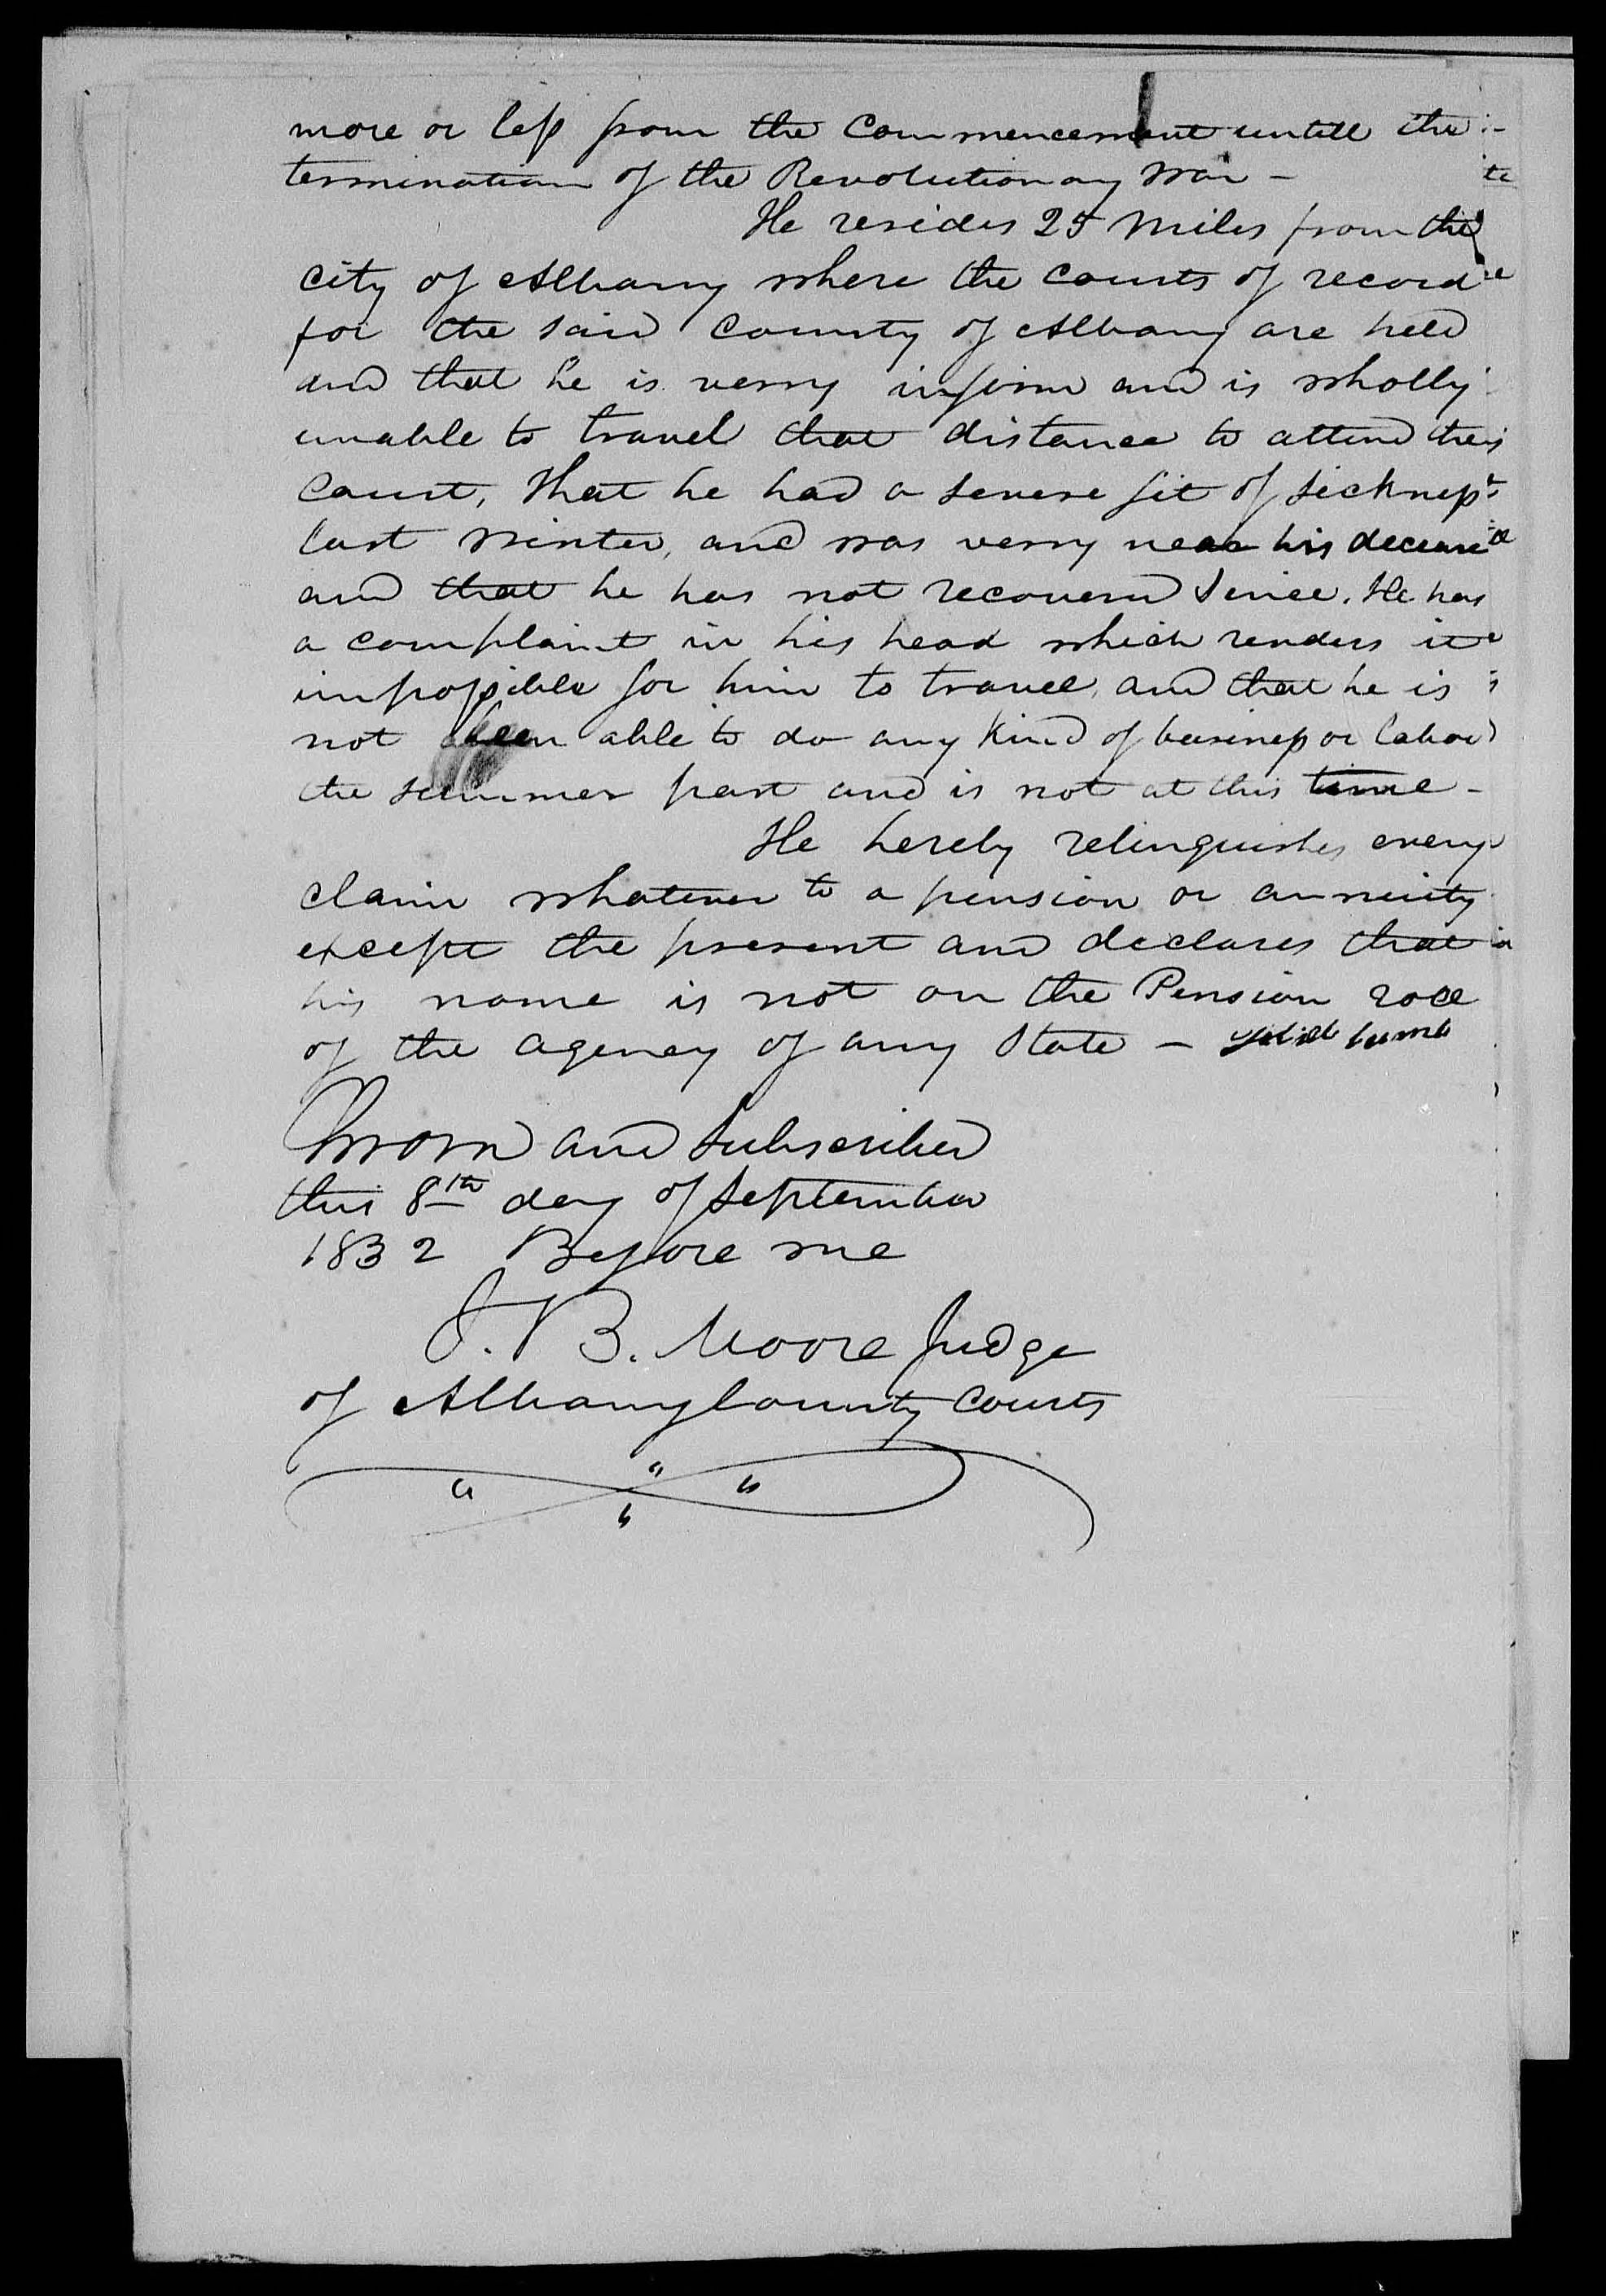 more or less from the Commencement untill the
termination of the Revolutionary War -
He resides 25 Miles from the
City of Albany where the Courts of record
for the said County of Albany are held
and that he is verry infirm and is wholly
unable to travel that distance to attend the
Court, that he had a severe fit of sickness
last Winter, and was verry near his decease
and that he has not recovered since. He has
a complaint in his head which renders it
impossible for him to travel, and that he is
not been able to do any Kind of business or labor
the summer past and is not at this time -
He hereby relinquishes every
claim whatever to a pension or annuity
except the present and declares that
his name is not on the Pension roll
of the agency of any State -
Sworn and Subscribed
this 8th day of September
1832 Before me
J. B. Moore Judge
of Albany County Courts